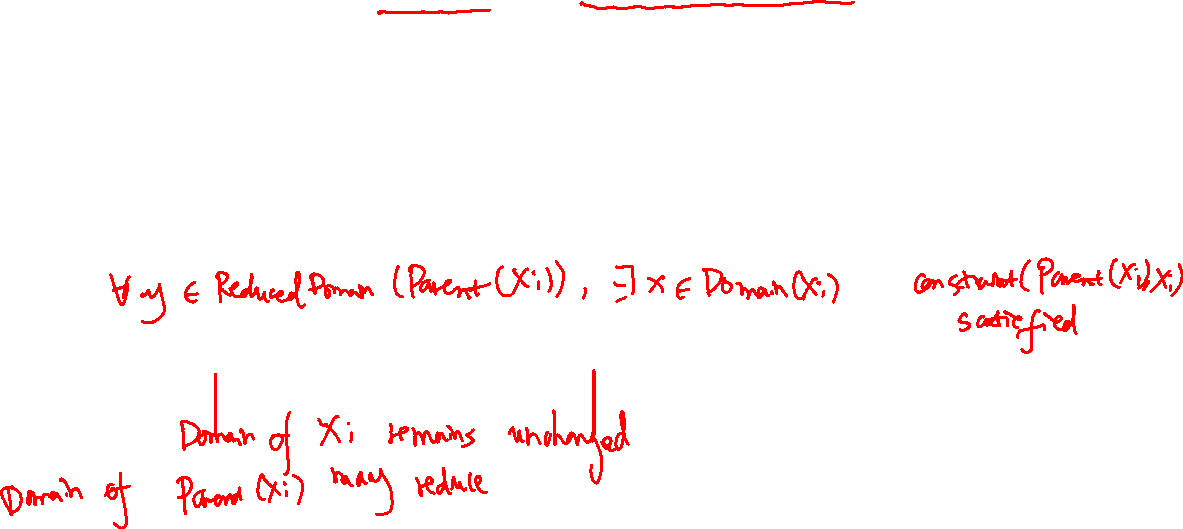 ∀ y ∈ ReducedDomain (Parent(Xi)), ∃ x ∈ Domain(Xi) constraint(Parent(Xi), Xi)
satisfied
Domain of Xi remains unchanged
Domain of Parent (Xi) may reduce